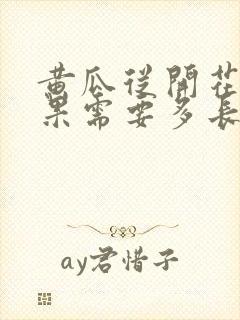 黄瓜从開花
果需要多長
ay君惜子